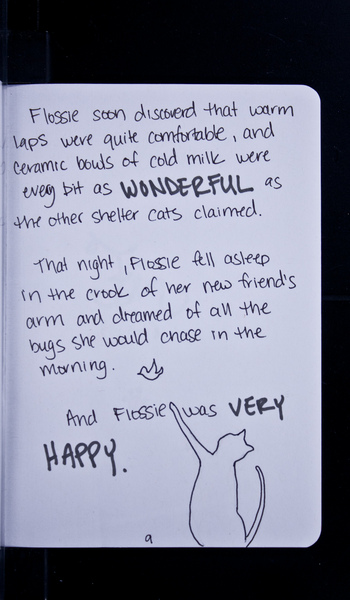 Flossie soon discoverd that warm
laps were quite comfortable, and
ceramic bowls of cold milk were
every bit as WONDERFUL as
the other shelter cats claimed.
That night, Flossie fell asleep
in the crook of her new friend's
arm and dreamed of all the
bugs she would chase in the
morning.
And Flossie was VERY
HAPPY.
9